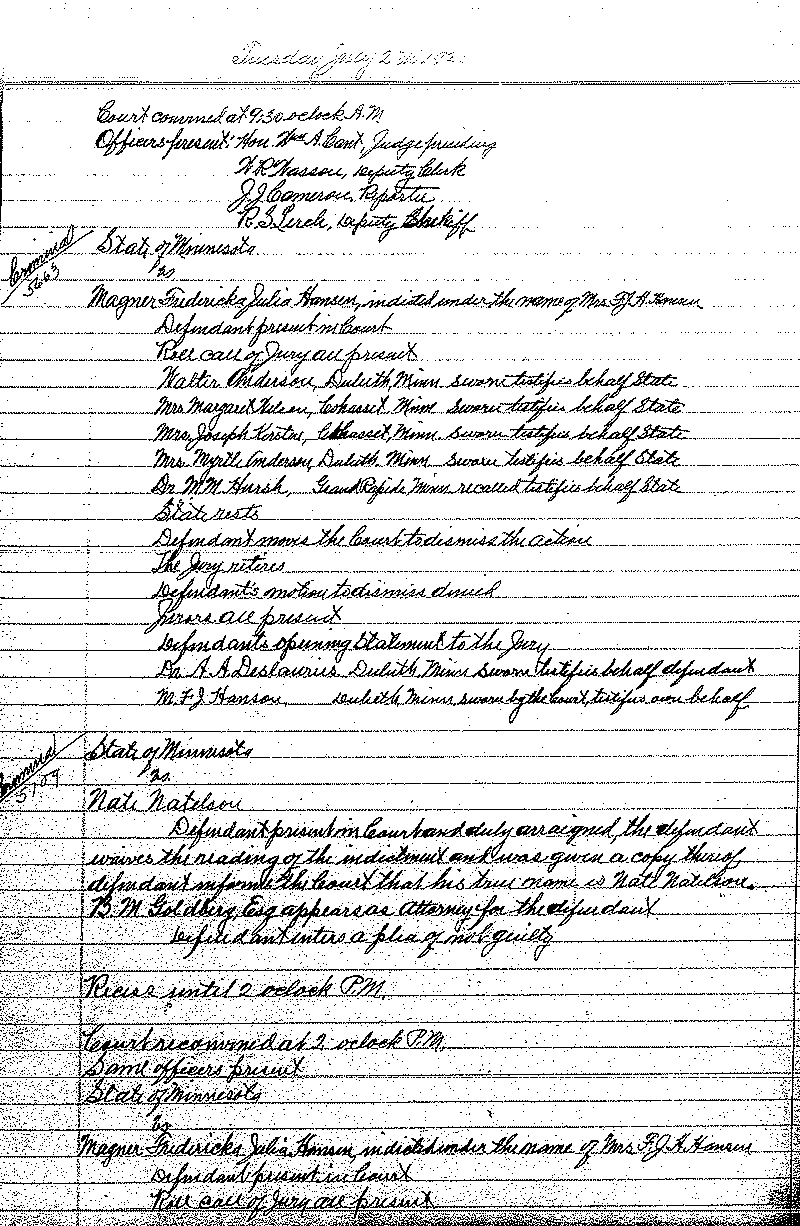 Tuesday July
Court convened at 9:30 oclock A.M
Officers present: Hon. Wm A. Cant, Judge presiding
W R Wasson, Deputy Clerk
J.J. Cameron, Reporter
R.S. Lerch, Deputy Sheriff
Criminal
5663
State of Minnesota
vs
Magner Fredericka Julia Hansen, indicted under the name of Mrs F.J.H. Hansen
Defendant present in Court
Roll call of Jury all present
Walter Anderson, Duluth, Minn sworn testifies behalf State
Mrs Margaret Nelson, Cohasset Minn sworn testifies behalf State
Mrs Joseph Cohasset, Minn. Sworn testifies behalf State
Mrs. Myrtle Anderson, Duluth Minn sworn testifies behalf State
Dr M.M. Hursh, Grand Rapids Minn recalled testifies behalf State
State rests
Defendant moves the Court to dismiss the action
The Jury retires
Defendant's motion to dismiss denied
Jurors all present
Defendants opening Statement to the Jury
Dr. A A Deslauries Duluth Minn sworn testifies behalf defendant
M. F. J. Hanson, Duluth Minn sworn by the Court, testifies own behalf
Criminal
State of Minnesota
vs.
Nate Natelson
Defendant present in Court and duly arraigned, the defendant
waives the reading of the indictment and was given a copy thereof
defendant informs the Court that his true name is Nate Natelson.
B. M Goldberg, Esq appears as Attorney for the defendant
Defendant enters a plea of not guilty
Recess until 2 oclock P.M.
Court reconvened at 2 oclock P.M.
Same officers present
State of Minnesota
vs
Magner Fredericka Julia Hansen, indicted under the name of Mrs F.J.H. Hansen
Defendant present in Court
Roll call of Jury all present